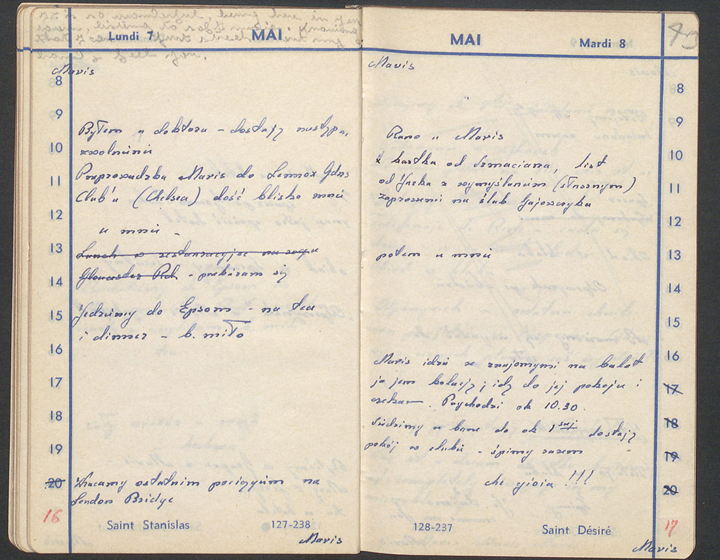 Lundi 7
MAI
Mavis
8
9
Byłem u doktora - dostaję następne
10
zwolnienie
11
Przeprowadzka Mavis do Lennox Gdns
Club'u (Chelsea) dość blisko mnie
12
u mnie -
13
Lunch w restauracyjce na rogu
14
Gloucester Rd. - przebieram się
15
Jedziemy do Epsom - na tea
i dinner - b. miło
16
17
18
19
20
Wracamy ostatnim pociągiem na
London Bridge
16
Saint Stanislas
127-238
Mavis
MAI
Mardi 8
Mavis
8
9
Rano u Mavis
10
kartka od Szmaciana, list
11
od Jacka z wymyślaniem (słusznym)
zaproszenie na ślub Gajowczyka
12
13
potem u mnie
14
15
16
Mavis idzie ze znajomymi na balet
17
ja jem kolację i idę do jej pokoju i
czekam. Przychodzi ok 10.30.
18
Siedzimy w barze do ok 1szej dostaję
19
pokój w clubie - śpimy razem
20
che gioia !!!
128-237
Saint Désiré
17
Mavis